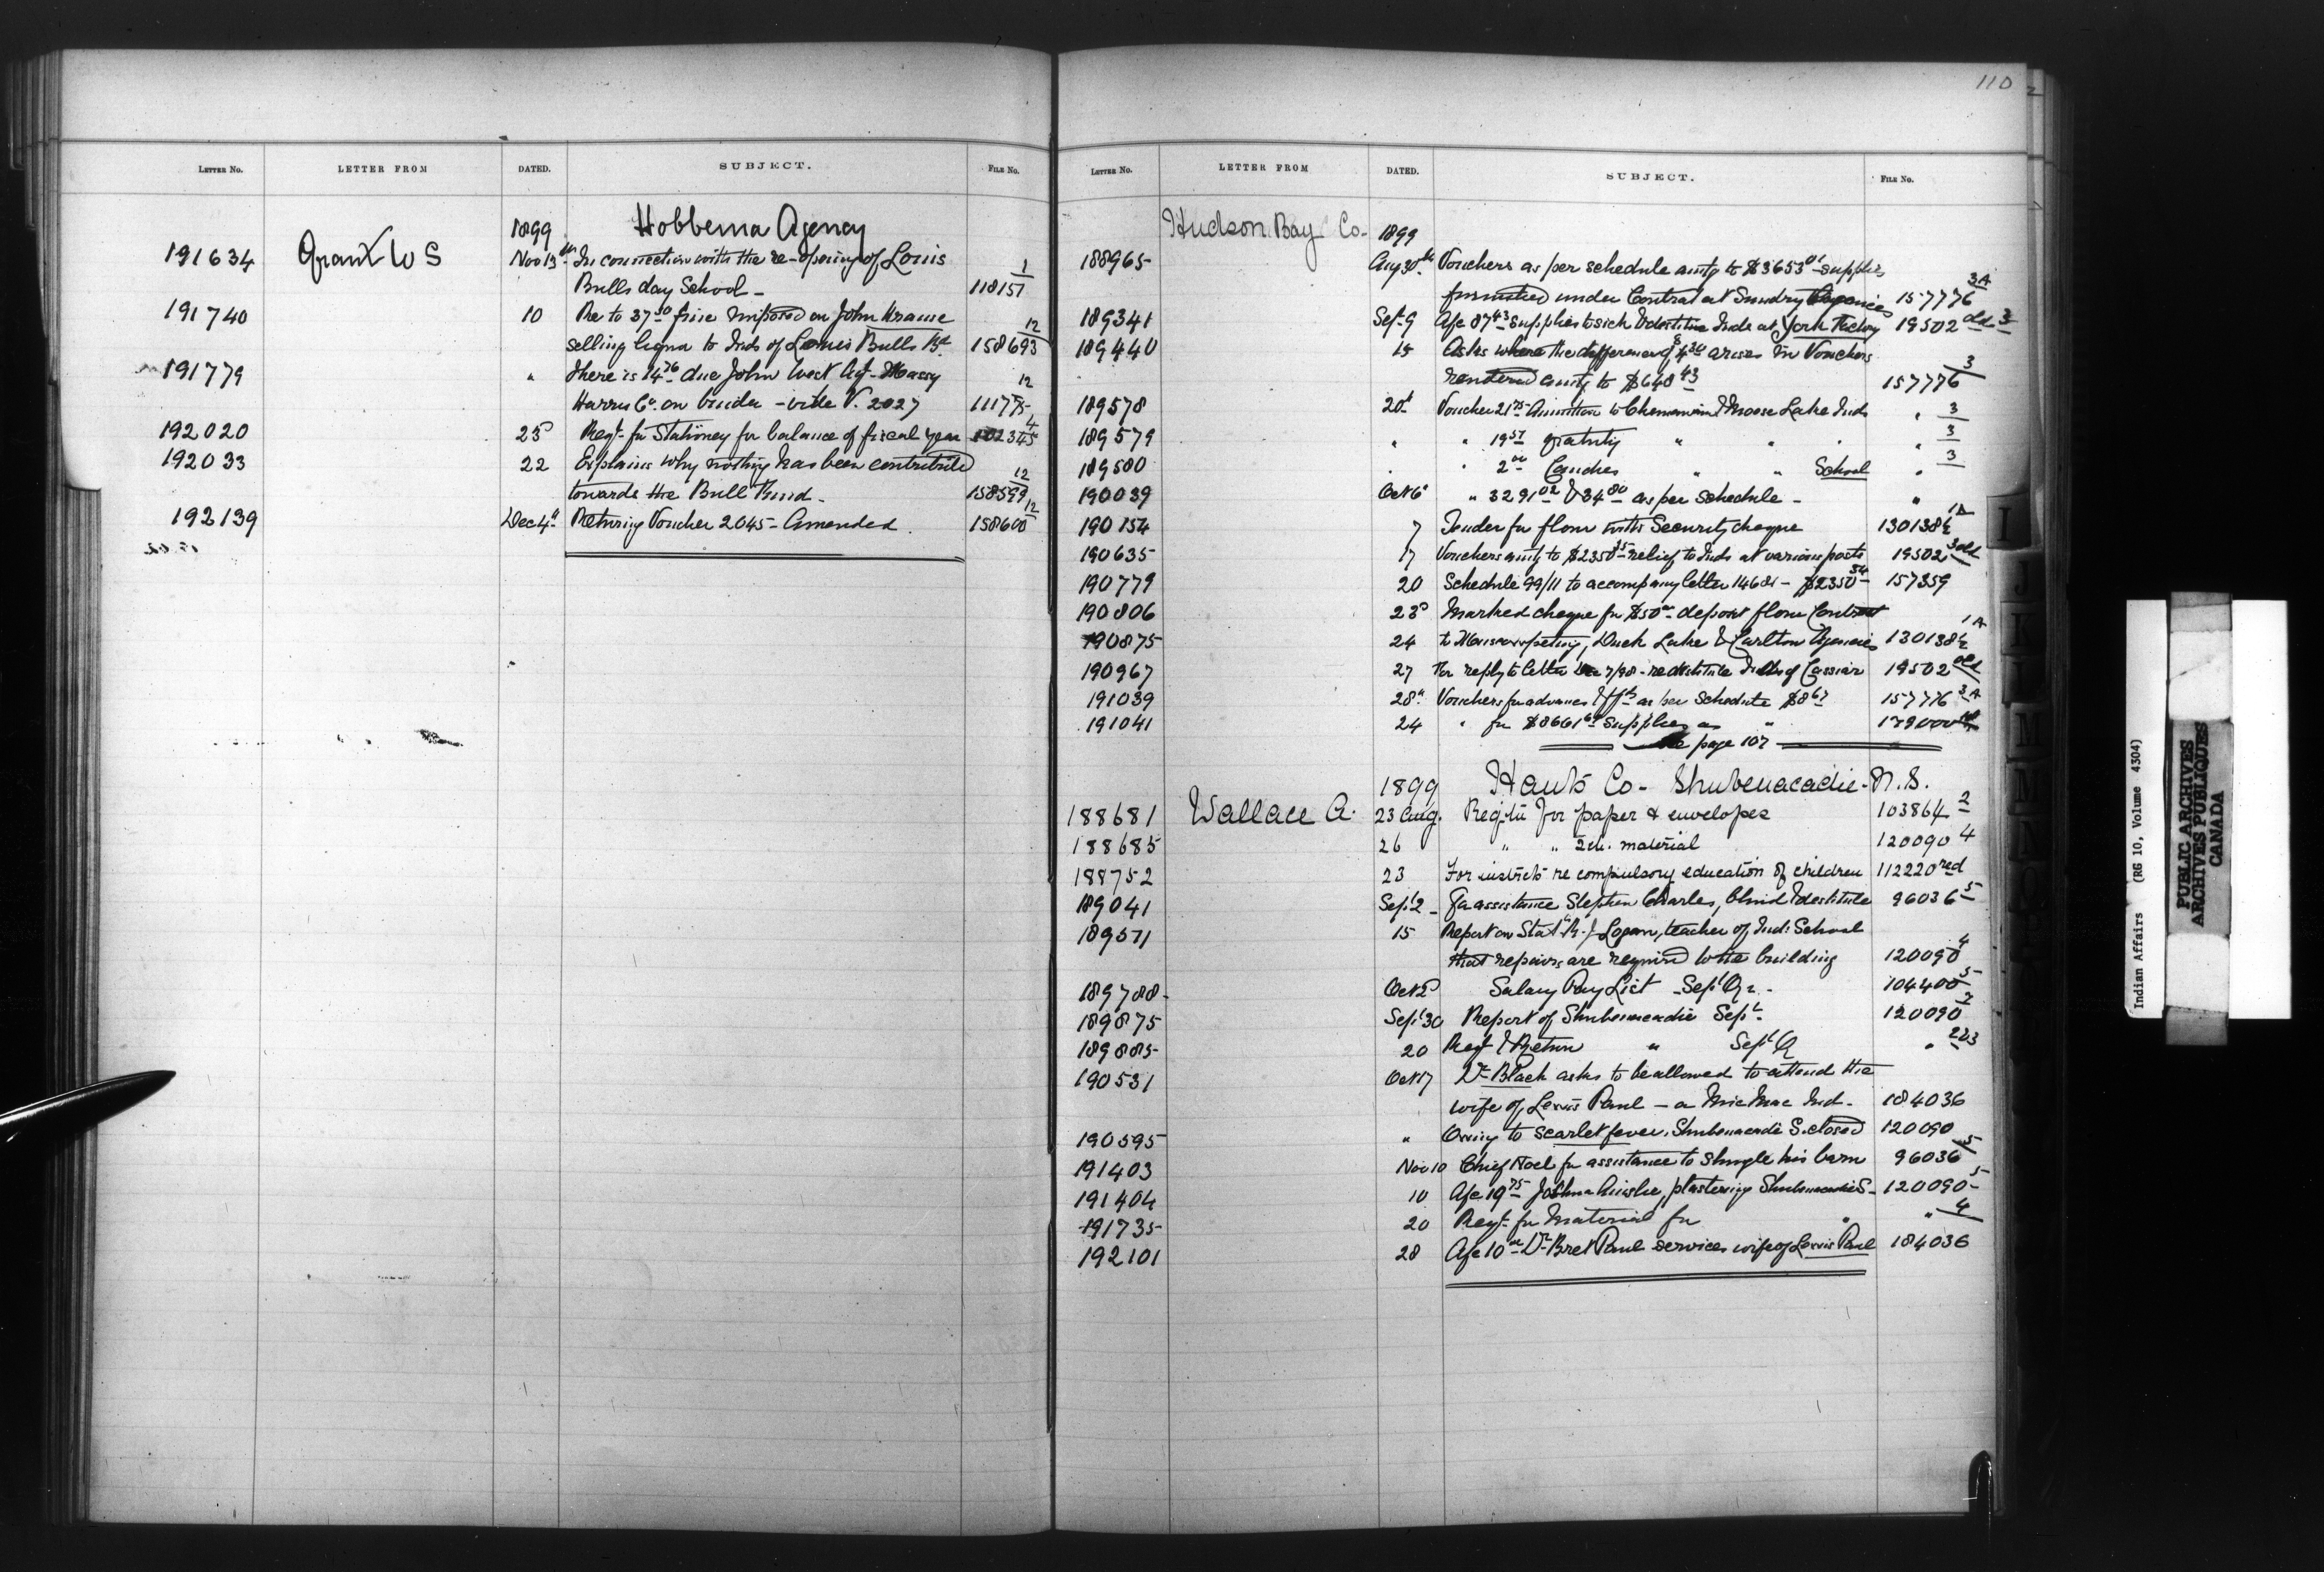 110
LETTER No. LETTER FROM DATED. SUBJECT. FILE No.
1899 Hobbema Agency
191634 Grant W S Nov 13th In connection with the re-opening of Louis
Bulls day School - 118151 1
191740 10 Re to 37.50 fine imposed on John Krause
selling liquor to Inds of Louis Bulls Bd. 158693 12
191779 " There is 14.76 due John West Agt. Massy
Harris Co. on binder - vide V. 2027 111775 12
192020 25 Reqt. for Stationery for balance of fiscal year 102345 4
192033 22 Explains why nothing has been contributed
towards the Bull Fund - 158599 12
192139 Dec 4th Returning Voucher 2045 - Amended 158600 12
LETTER No. LETTER FROM DATED. SUBJECT. FILE No.
Hudson Bay Co- 1899
188965 Aug 30th Vouchers as per schedule amtg to $3653 01 - supplies
furnished under Contract at Sundry Agencies 157776 3A
189341 Sept 9 A/c 87 43 supplies to sick & destitute Inds at York Factory 19502 old 3
189440 15 Asks where the difference of $4 30 arises in Vouchers
rendered amtg to $648 43 157776 3
189578 20th Voucher 21 75 Amunition to Chemawin & Moose Lake Inds " 3
189579 " " 19 51 gratuity " " " " 3
189580 " " 2 00 Candies " " School " 3
190039 Oct 6 " 3291 02 & 34 80 as per Schedule - "
190154 7 Tender for flour with Security cheque 130138½ 1A
190635 17 Vouchers amtg to $2350 35 relief to Inds at various posts 19502 3 old
190779 20 Schedule 99/11 to accompany letter 14681 - $2350 34 157359
190806 23 Marked cheque for $50 00 deposit flour Contract
190875 24 to Moosomin, Duck Lake & Carlton Agencies 130138½ 1A
190967 27 For reply to letter 7/98 - re destitute Inds of Cassiar 19502 old
191039 28th Vouchers for advances as per Schedule $8 67 157776 3A
191041 24 " for $8661 supplies as "
See page 107
1899 Hants Co - Shubenacadie - N.S.
188681 Wallace A. 23 Aug. Reqtn for paper & envelopes 103864 2
188685 26 " " material 120090 4
188752 23 For instrcts re compulsory education of children 112220 red
189041 Sept 2 - For assistance Stephen Charles, blind & destitute 96036 5
189571 15 Report on Stat. R. J Logan, teacher of Ind: School
that repairs are required to the building 120090 4
189788 - Oct 2 Salary Pay List - Sept Qr. - 104400 5
189875 Sept 30 Report of Shubenacadie Sept. 120090 2
189885 20 Reqt & Return " Sept Q " 2 & 3
190531 Oct 17 Dr. Black asks to be allowed to attend the
wife of Lewis Paul - a Mic Mac Ind - 184036
190595 " Owing to scarlet fever, Shubenacadie S. closed 120090
191403 Nov 10 Chief Noel for assistance to shingle his barn 96036 5
191404 10 A/c 19 75 Joshua Ainslie, plastering Shubenacadie S - 120090 5
191735 20 Reqt. for Material for " " 4
192101 28 A/c 10 00 Dr. services wife of Lewis Paul 184036
I
J
K
L
M
Indian Affairs (RG 10, Volume 4304)
PUBLIC ARCHIVES
ARCHIVES PUBLIQUES
CANADA